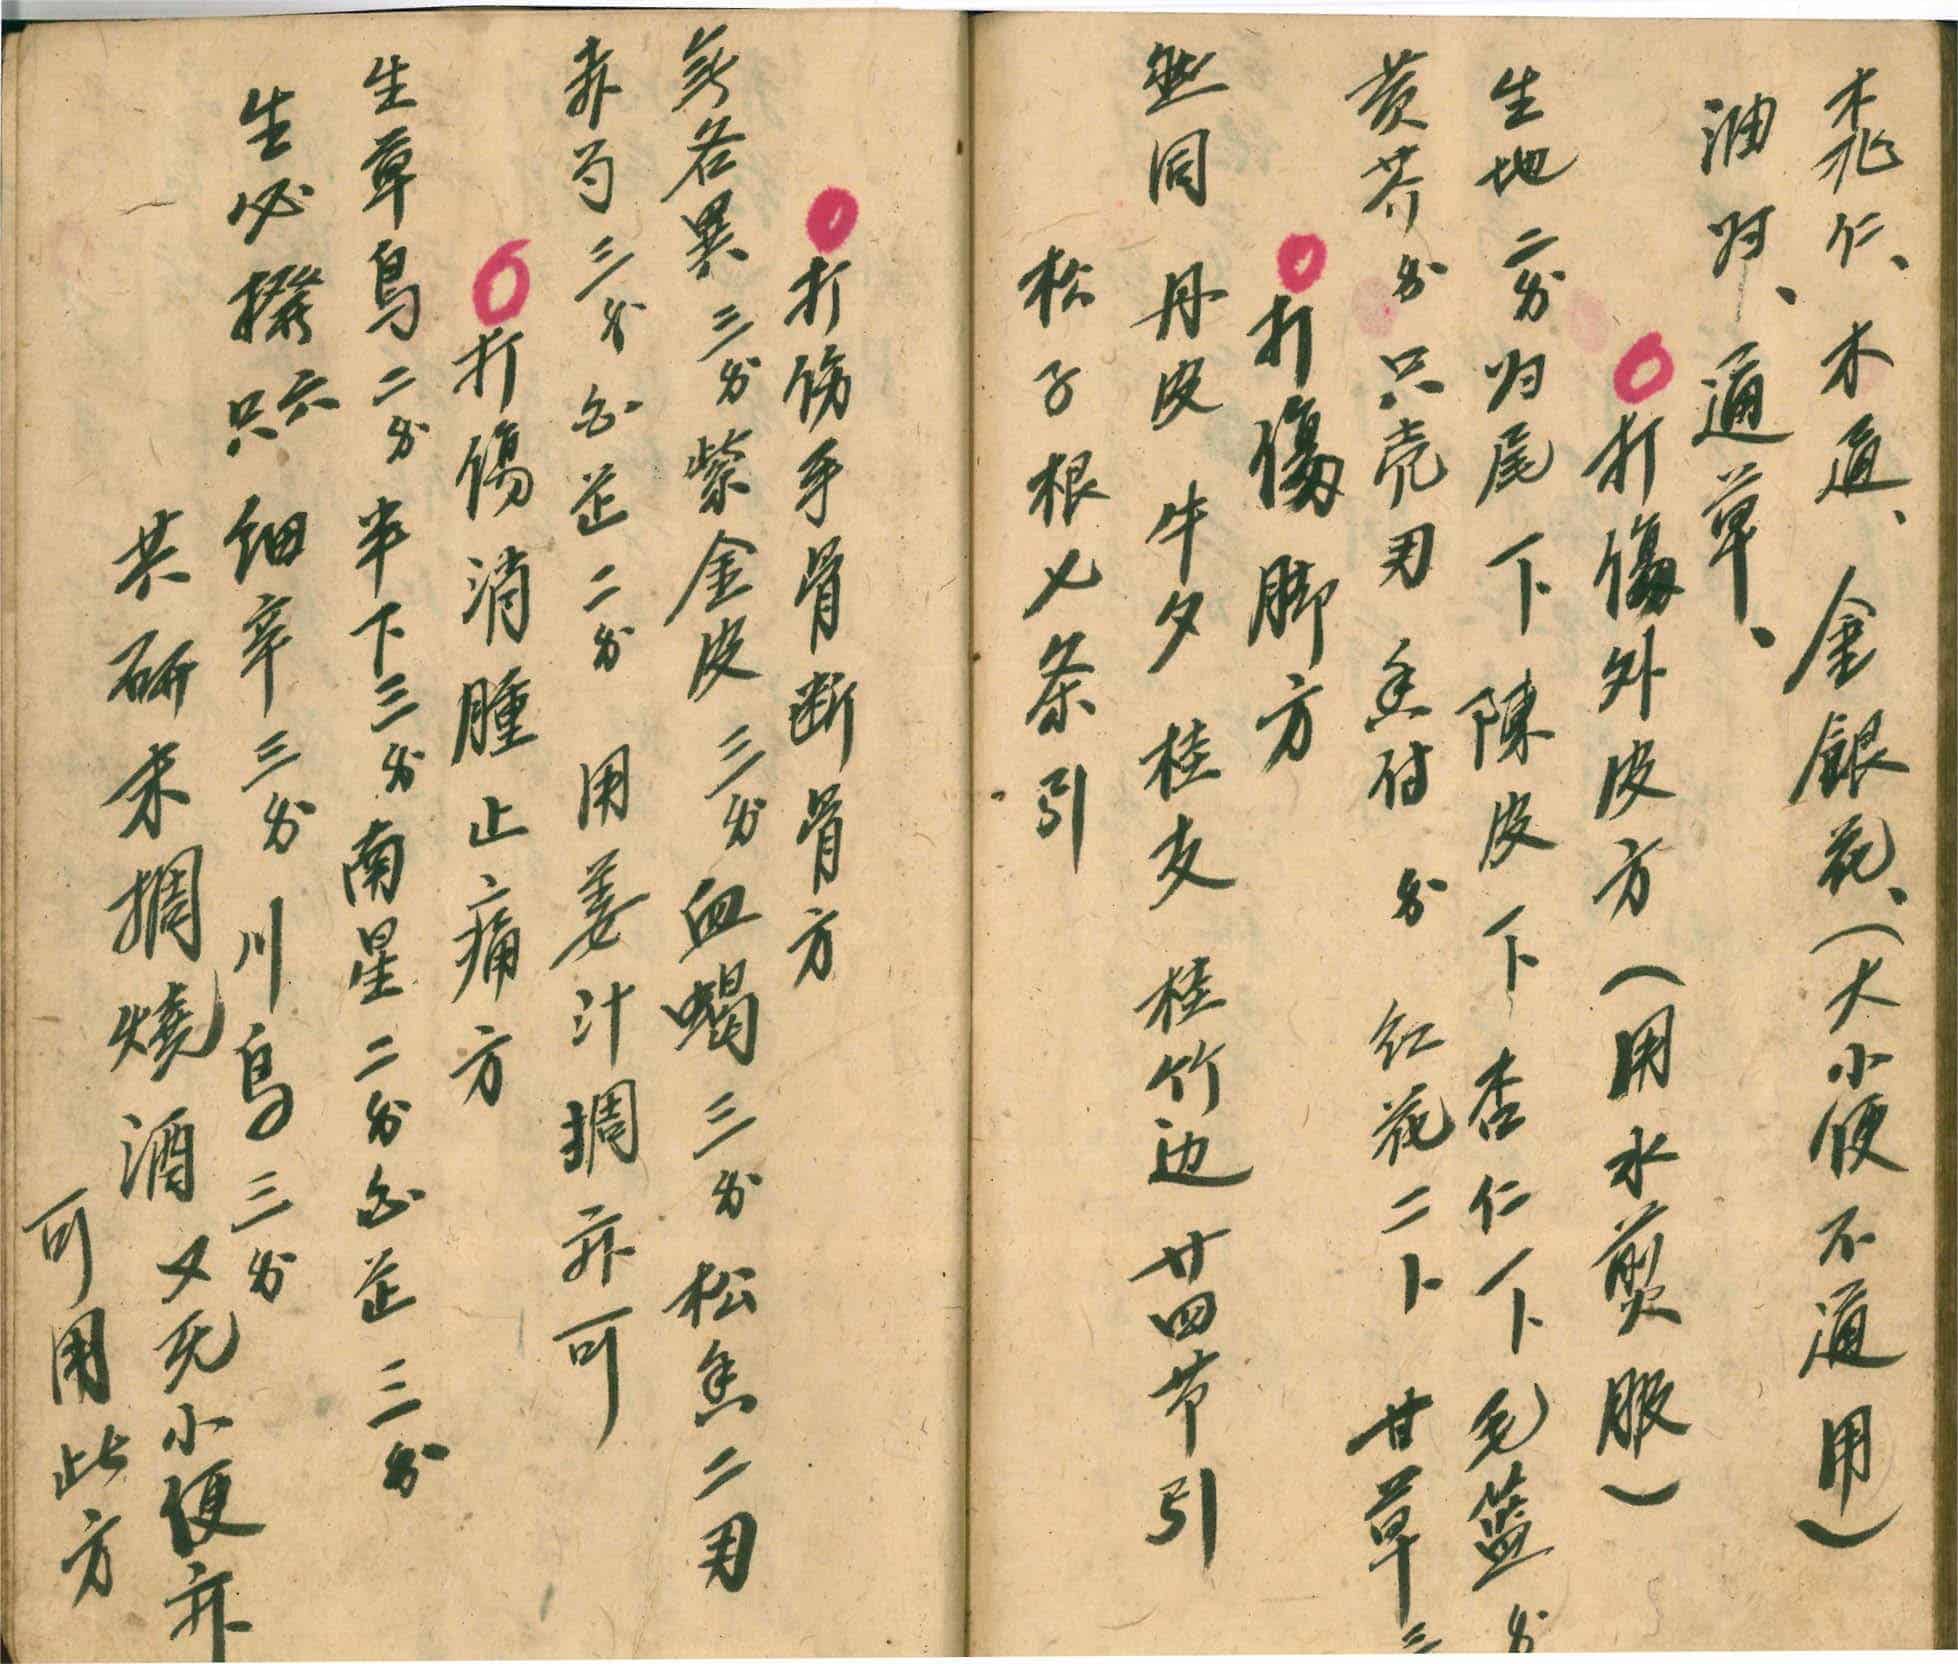 木兆仁、木通、金銀花、(大小便不通用)
油归、通草、
打傷外皮方(用水煎服)
生地二分归尾下陳皮下杏仁下毛蓝分
黄芥分只壳用香付分红花二卜甘草三
打傷脚方
然同 丹皮 牛夕 桂支 桂竹边廿四节引
松子根乂条引
打傷手骨断骨方
名異三分紫金皮三分血蝎三分松香二用
赤勺三分白芷二分 用姜汁搁亦可
打傷消腫止痛方
生草烏二分半下三分南星二分白芷三分
生必撥六只 细辛三分川烏三分
共研末搁燒酒又死小便亦
可用此方